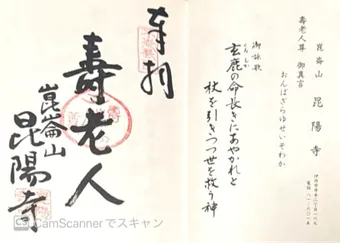 崑崙山 昆陽寺
壽老人尊 御真言
おんばざらゆせいそわか
御詠歌
玄鹿の命長きにあやかれと
杖を引きつつ世を救う神
奉拝
壽老人
崑崙山
昆陽寺
CamScannerでスキャン